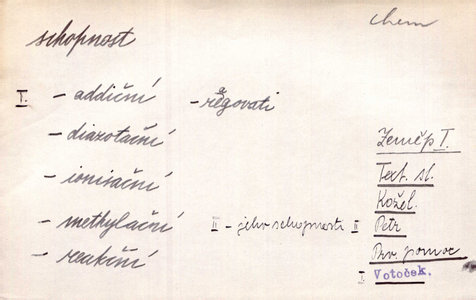 chem
schopnost
I. - addiční - reagovati
- diazotační
Zeměp I.
- ionisační
Text. sl.
Kožel.
- methylační II - jeho schopnosti II Petr
- reakční
Prv. pomoc
I. Votoček.